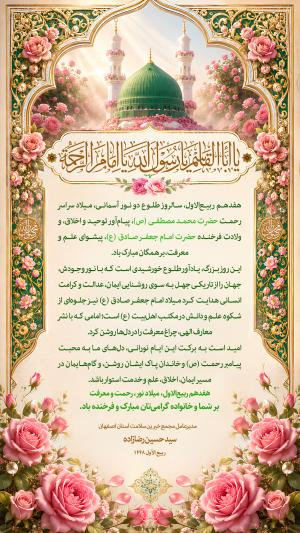 یا ابا القاسم یا رسول الله یا امام الرحمة
هفدهم ربیع‌الاول، سالروز طلوع دو نور آسمانی، میلاد سراسر
رحمت حضرت محمد مصطفی (ص)، پیام‌آور توحید و اخلاق، و
ولادت فرخنده حضرت امام جعفر صادق (ع)، پیشوای علم و
معرفت، بر همگان مبارک باد.
این روز بزرگ، یادآور طلوع خورشیدی است که با نور وجودش،
جهان را از تاریکی جهل به سوی روشنایی ایمان، عدالت و کرامت
انسانی هدایت کرد میلاد امام جعفر صادق (ع) نیز جلوه‌ای از
شکوه علم و دانش در مکتب اهل‌بیت (ع) است؛ امامی که با نشر
معارف الهی، چراغ معرفت را در دل‌ها روشن کرد.
امید است به برکت این ایام نورانی، دل‌های ما به محبت
پیامبر رحمت (ص) و خاندان پاک ایشان روشن، و گام‌هایمان در
مسیر ایمان، اخلاق، علم و خدمت استوار باشد.
هفدهم ربیع‌الاول، میلاد نور، رحمت و معرفت
بر شما و خانواده گرامی‌تان مبارک و فرخنده باد.
مدیرعامل مجمع خیرین سلامت استان اصفهان
سید حسین رضازاده
ربیع الاول ۱۴۴۸